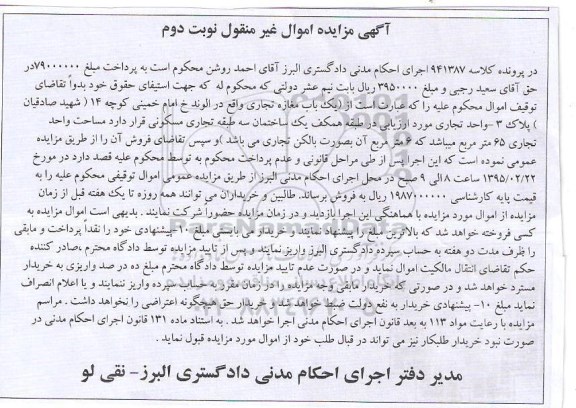 آگهی مزایده اموال غیر منقول نوبت دوم
در پرونده کلاسه ۹۴۱۳۸۷ اجرای احکام مدنی دادگستری البرز آقای احمد روشن محکوم است به پرداخت مبلغ ۷۹۰۰۰۰۰۰در
حق آقای سعید رجبی و مبلغ ۳۹۵۰۰۰۰ ریال بابت نیم عشر دولتی که محکوم له که جهت استیفای حقوق خود بدواً تقاضای
توقیف اموال محکوم علیه را که عبارت است از (یک باب مغازه تجاری واقع در الوند خ امام خمینی کوچه ۱۴ ( شهید صادقیان
) پلاک ۳ -واحد تجاری مورد ارزیابی در طبقه همکف یک ساختمان سه طبقه تجاری مسکونی قرار دارد مساحت واحد
تجاری ۶۵ متر مربع میباشد که ۶ متر مربع آن بصورت بالکن تجاری می باشد )و سپس تقاضای فروش آن را از طریق مزایده
عمومی نموده است که این اجرا پس از طی مراحل قانونی و عدم پرداخت محکوم به توسط محکوم علیه قصد دارد در مورخ
۱۳۹۵/۰۲/۲۲ ساعت ۸ الی ۹ صبح در محل اجرای احکام مدنی البرز از طریق مزایده عمومی اموال توقیفی محکوم علیه را به
قیمت پایه کارشناسی ۱۹۸۷۰۰۰۰۰۰ ریال به فروش برساند. طالبین و خریداران می توانند همه روزه تا یک هفته قبل از زمان
مزایده از اموال مورد مزایده با هماهنگی این اجرا بازدید و در زمان مزایده حضوراً شرکت نمایند . بدیهی است اموال مزایده به
کسی فروخته خواهد شد که بالاترین مبلغ را پیشنهاد نمایند و خریدار می بایستی مبلغ ۱۰- پیشنهادی خود را نقداً پرداخت و مابقی
را ظرف مدت دو هفته به حساب سپرده دادگستری البرز واریز نمایند و پس از تایید مزایده توسط دادگاه محترم ،صادر کننده
حکم تقاضای انتقال مالکیت اموال نماید و در صورت عدم تایید مزایده توسط دادگاه محترم مبلغ ده در صد واریزی به خریدار
مسترد خواهد شد و در صورتی که خریدار مابقی وجه مزایده را در زمان مقرر به حساب سپرده واریز ننمایند و یا اعلام انصراف
نماید مبلغ ۱۰- پیشنهادی خریدار به نفع دولت ضبط خواهد شد و خریدار حق هیچگونه اعتراضی را نخواهد داشت . مراسم
مزایده با رعایت مواد ۱۱۳ به بعد قانون اجرای احکام مدنی اجرا خواهد شد . به استناد ماده ۱۳۱ قانون اجرای احکام مدنی در
صورت نبود خریدار طلبکار نیز می تواند در قبال طلب خود از اموال مورد مزایده قبول نماید .
مدیر دفتر اجرای احکام مدنی دادگستری البرز- نقی لو